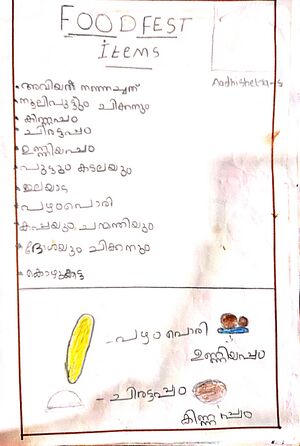 FOOD FEST
Items
Aadhishelra-s
നൂലിപുട്ടും ചിക്കനും
കിണ്ണപ്പം
ചിരട്ടപ്പം
ഉണ്ണിയപ്പം
പുട്ടും കടലയും
ഇലയട
പഴംപൊരി
കപ്പയും ചമ്മന്തിയും
ദോശയും ചിക്കനും
കൊഴുക്കട്ട
പഴംപൊരി
ഉണ്ണിയപ്പം
ചിരട്ടപ്പം
കിണ്ണപ്പം